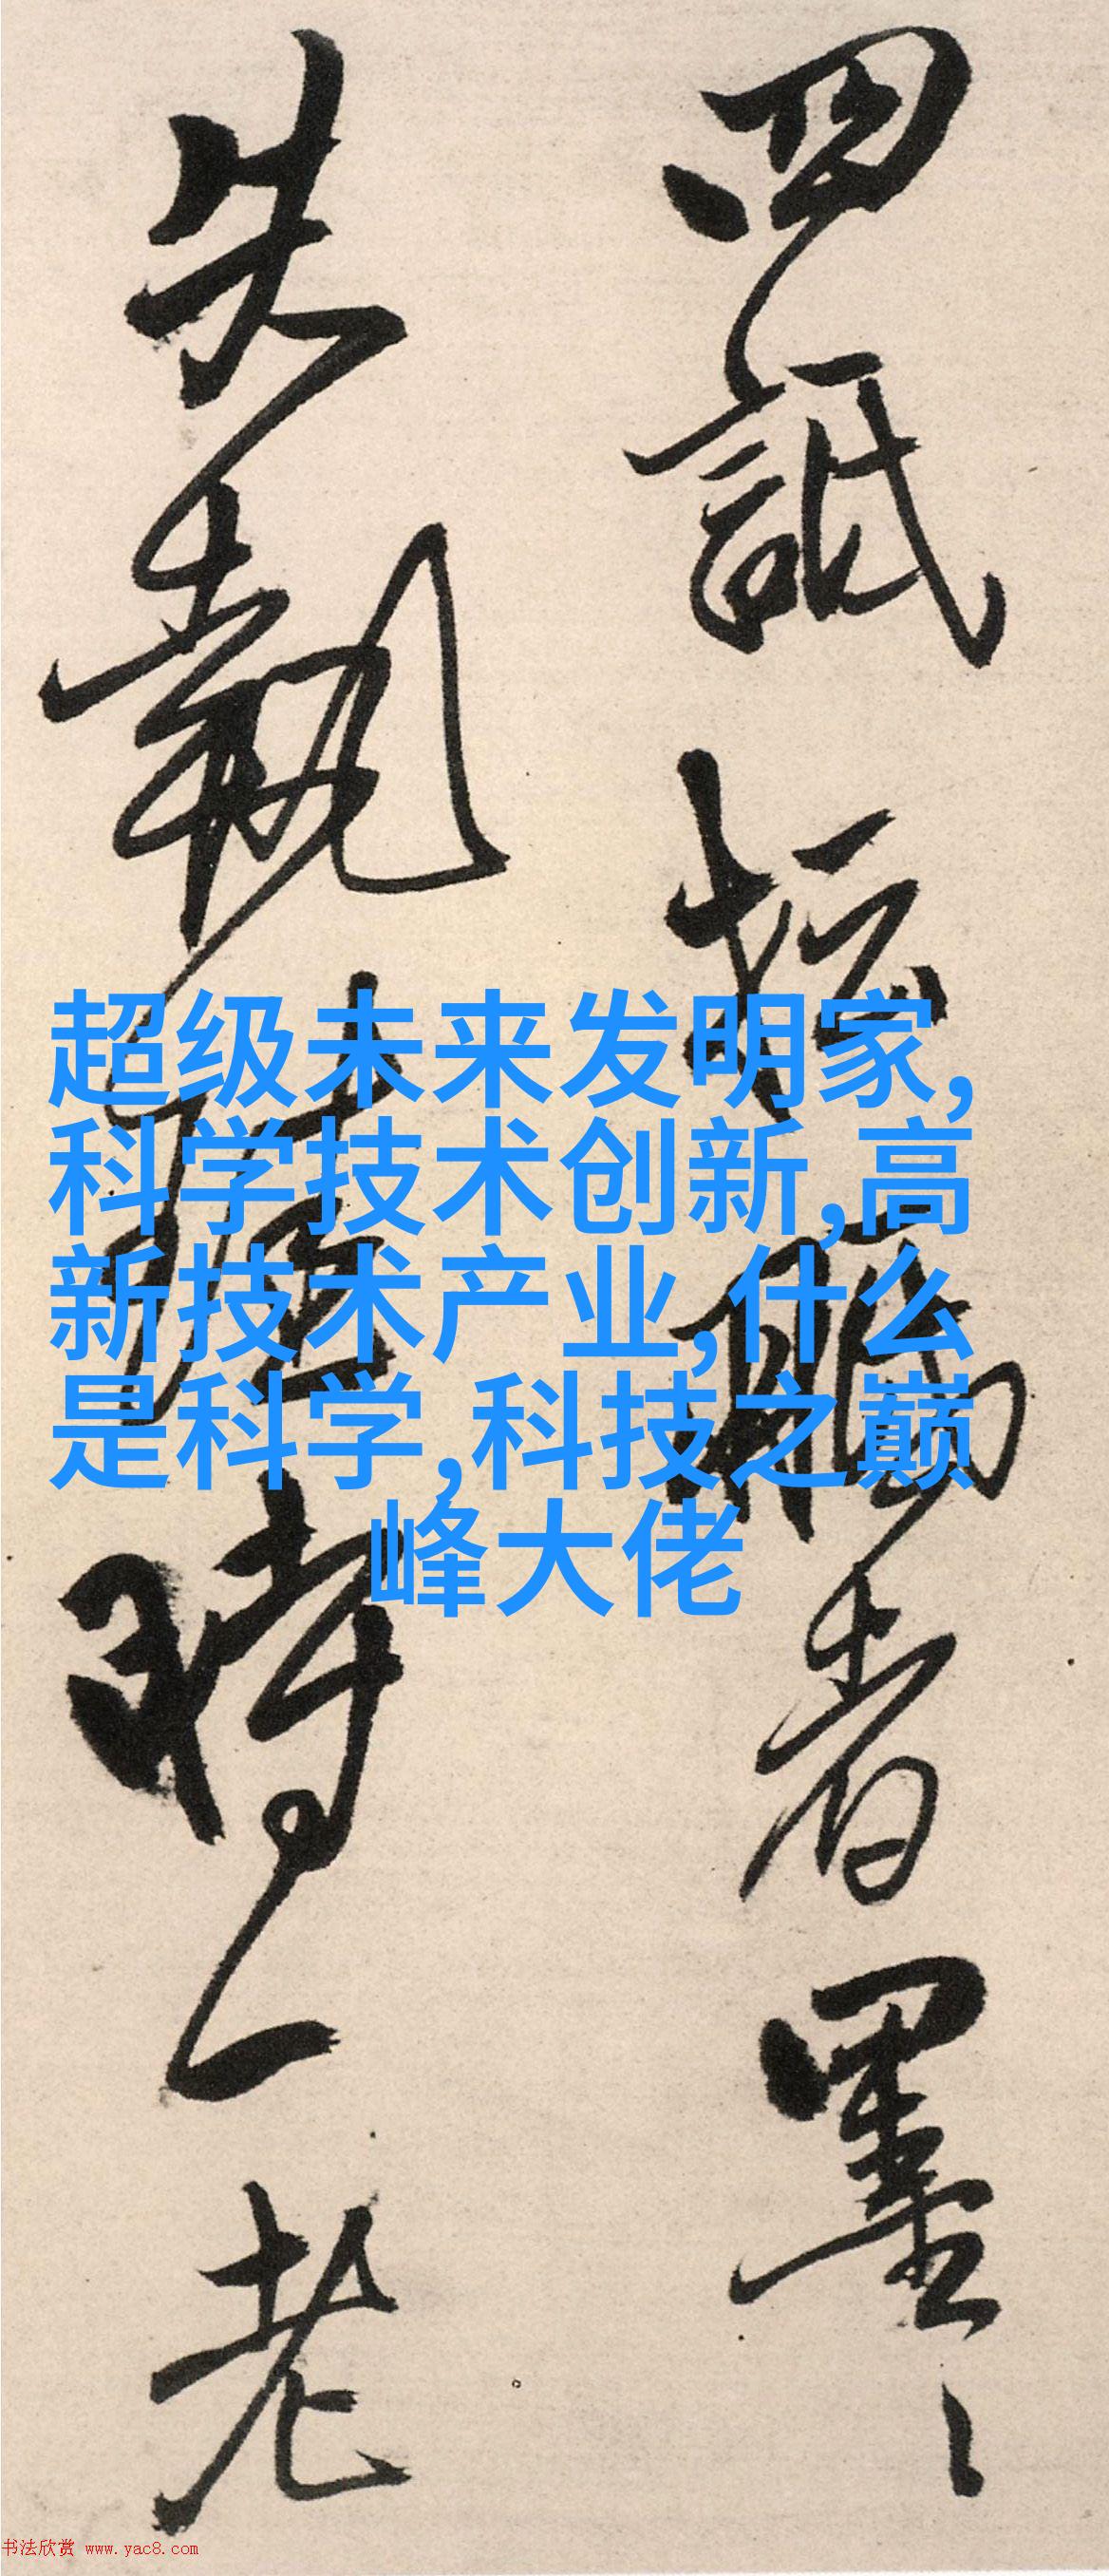 四詆坛
者墨
失執
時一老
超级未来发明家,
科学技术创新,高
新技术产业,什么
是科学,科技之巅
峰大佬
书法欣赏 www.yac8.com